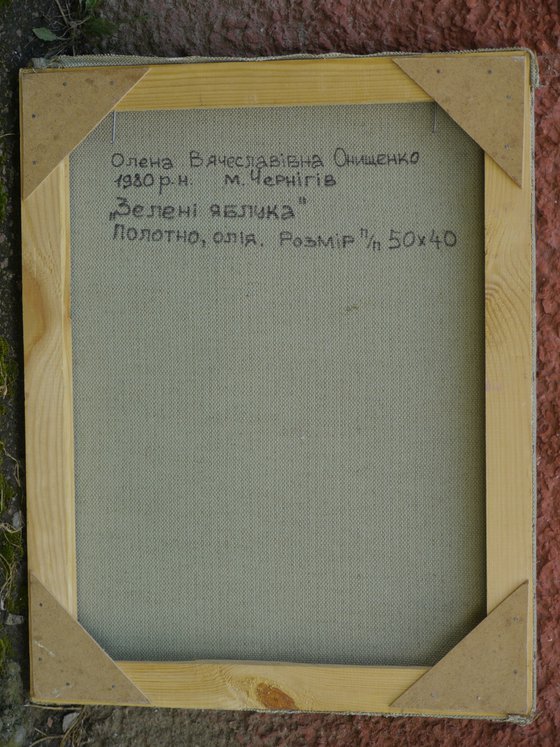 Олена Вячеславівна Онищенко
1980 р.н. м. Чернігів
„Зелені яблука"
Полотно, олія. Розмір п/п 50х40